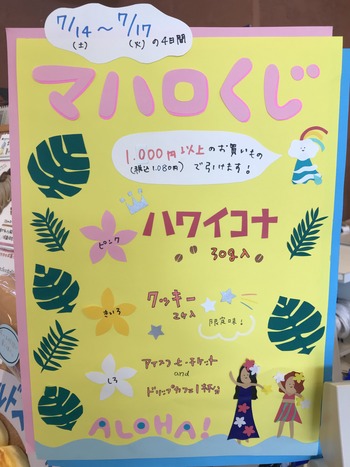 7/14 ~ 7/17 の4日間
(土) (火)
マハロくじ
1.000円以上のお買いもの
(税込1.080円) で引けます!
ハワイコナ
ピンク
30g入
クッキー
きいろ
2コ入
限定味!
アイスコーヒーチケット
しろ
and
ドリップカフェ1杯分
ALOHA!